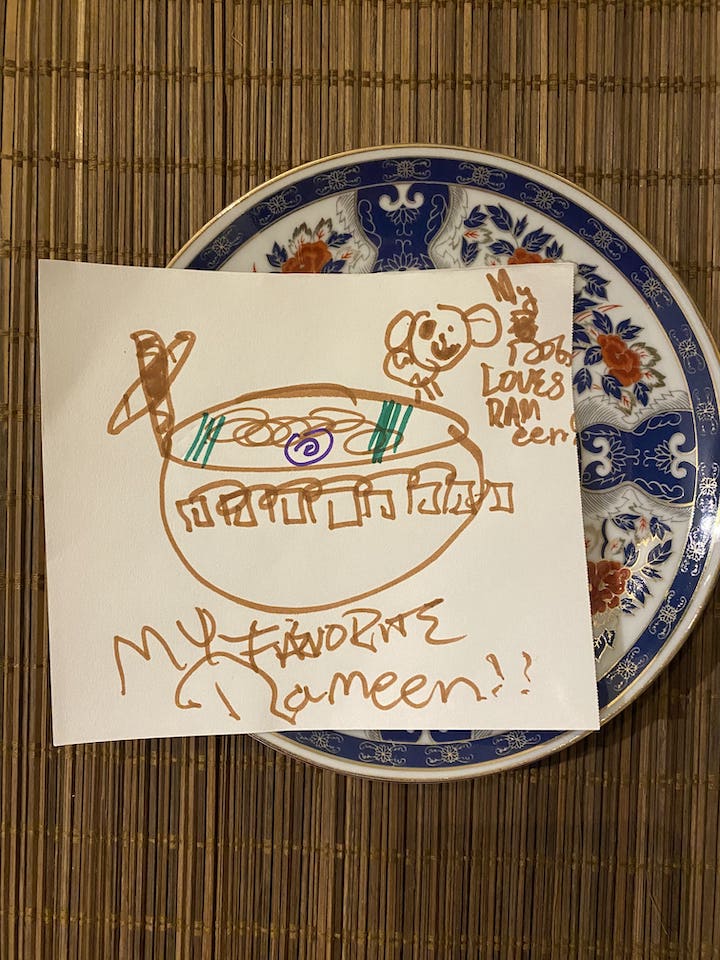 My
LOVES
RAM
een!
MY FAVORITE
Rameen!!